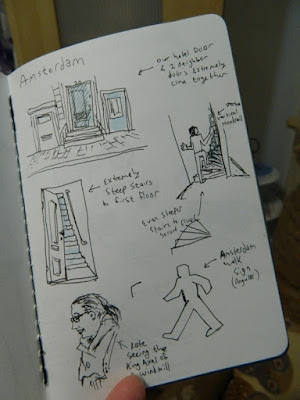 Amsterdam
our hotel door
& 2 neighbor
doors extremely
close together
vertical
handrail
extremely
steep stairs
to first floor
even steeper
stairs to
second floor
Amsterdam
walk
sign
(regular)
Kate
seeing the
King Axel of
windmill